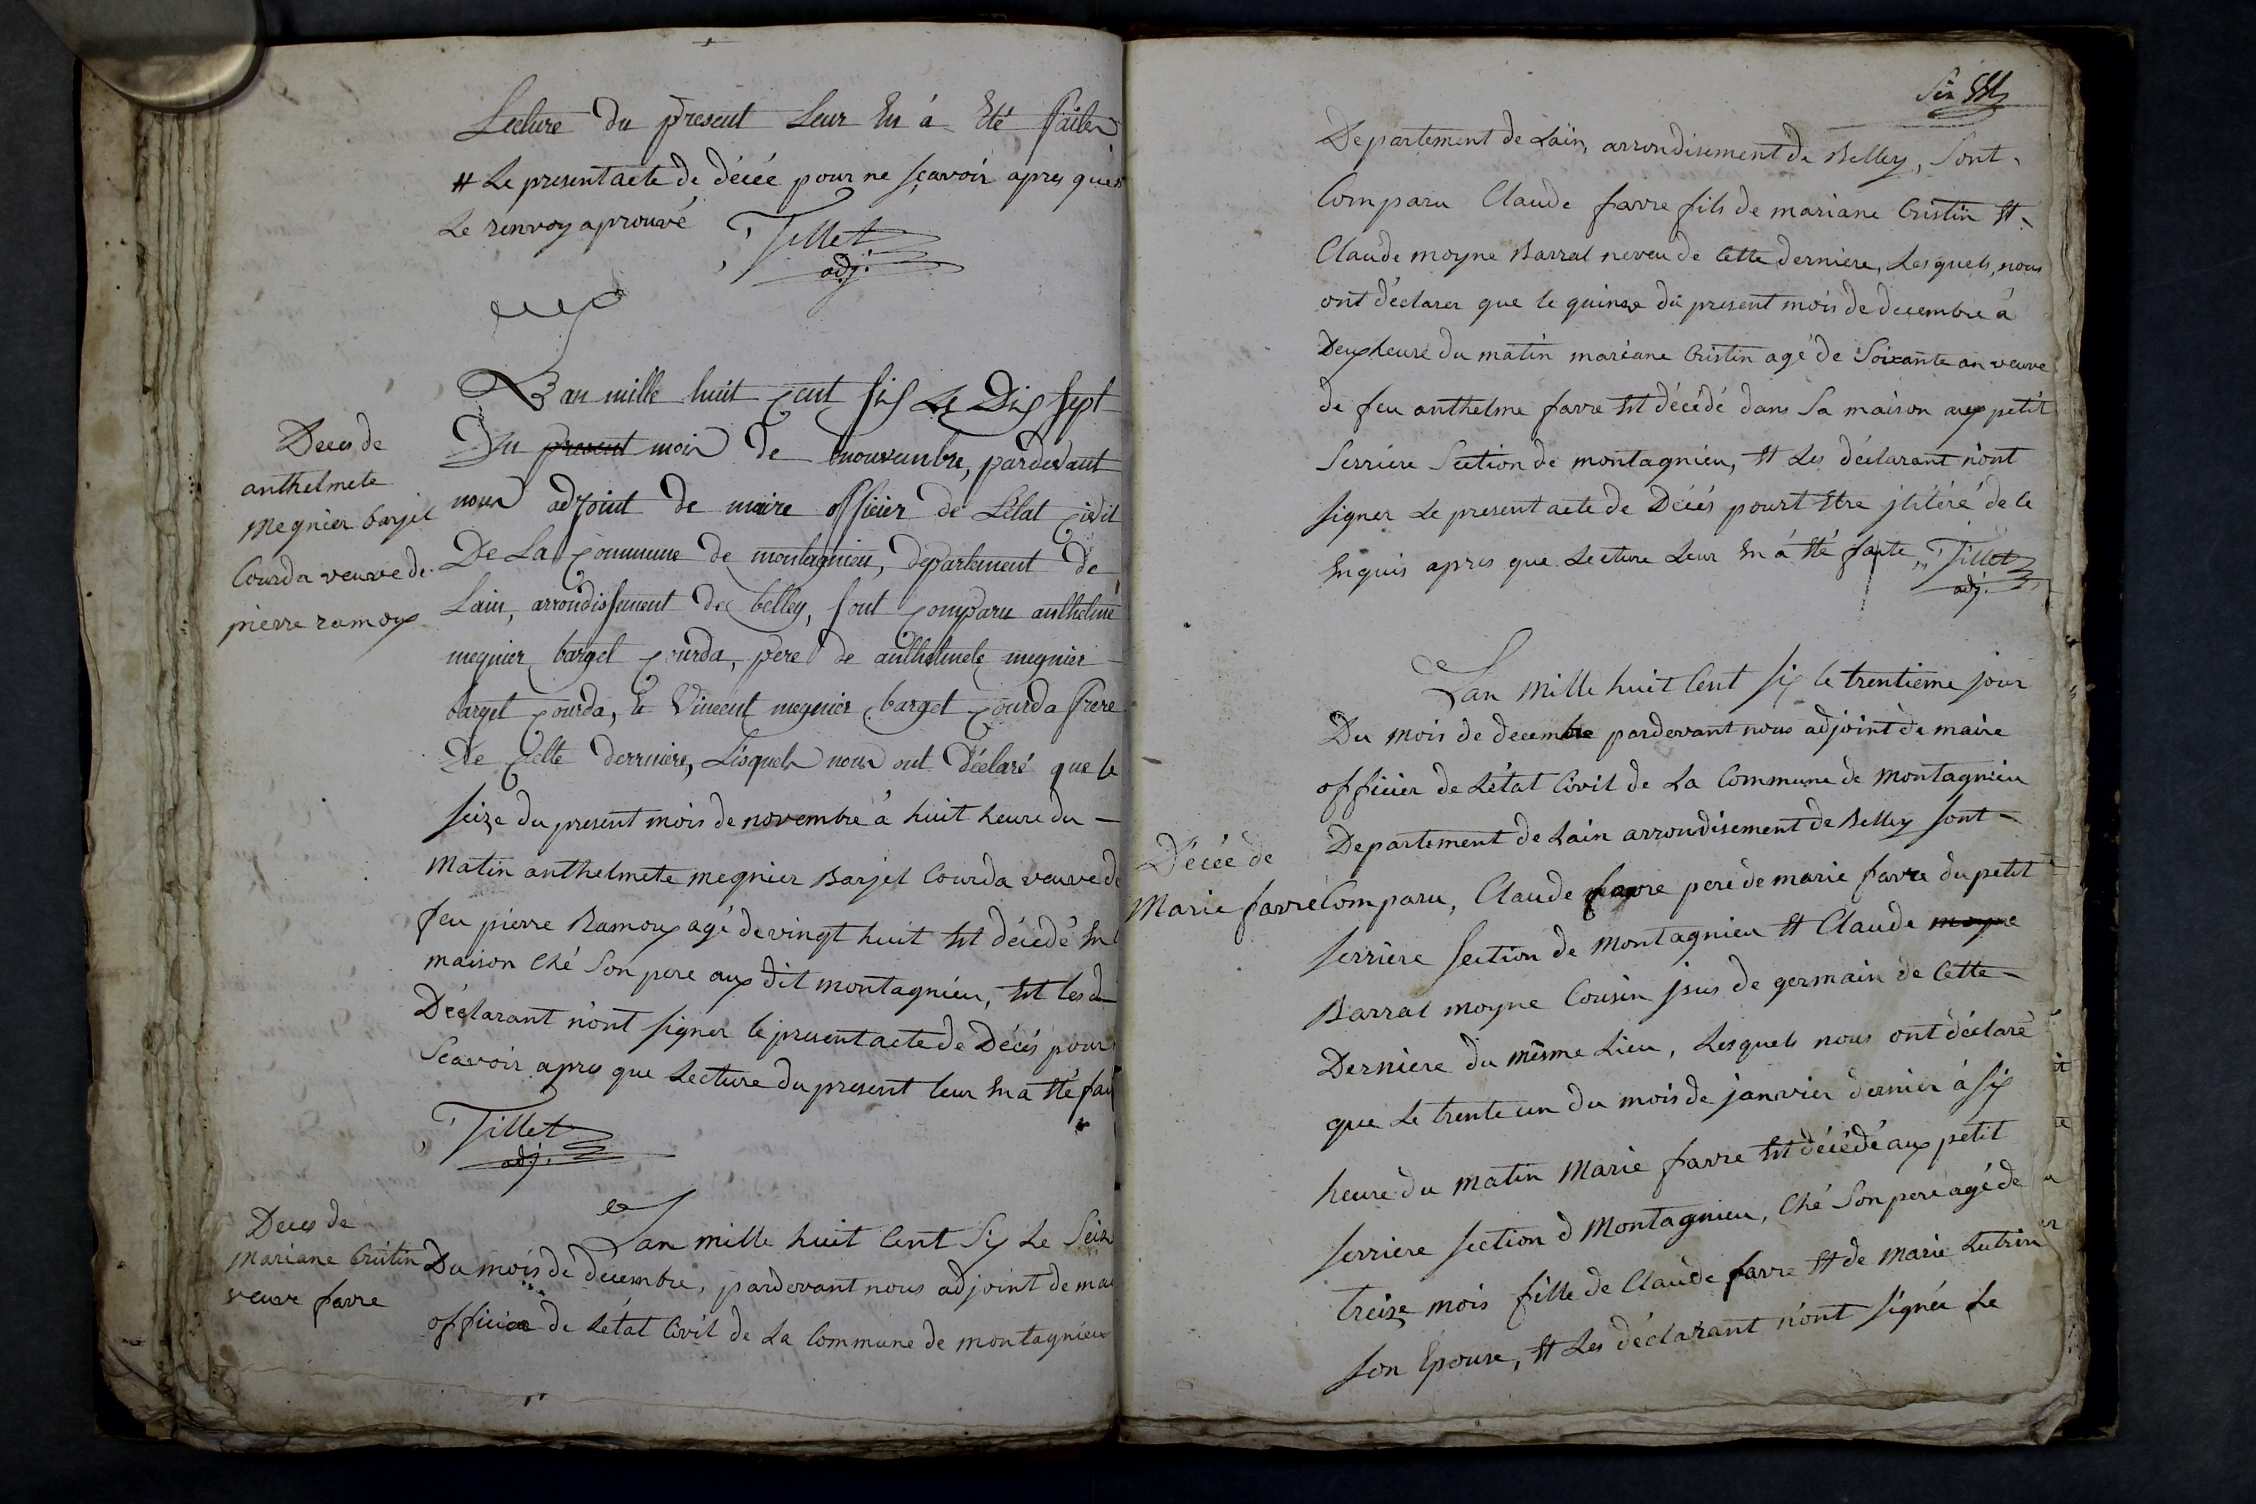 Lecture du présent Leur En á Eté faite
# Le present acte de décée pour ne sçavoir apres que
Le renvoy aprouvé Tillet
adj.
Deces de
anthelmete
Megnier barjel
Courda veuve de
pierre ramoux
Lan mille huit cent six Le Dix sept
Du present mois de nouvembre, pardevant
nous adjoint de maire officier de L'Etat civil
De La Commune de montagnieu, département de
Lain, arrondissement de belley, sont comparu anthelme
megnier bargel courda, pere de anthelmete megnier
bargel courda, Et Vincent megnier bargel courda frere
De cette derrniere, Lesquels nous ont déclaré que le
seize du present mois de novembre á huit heure du
Matin anthelmete megnier Barjel Courda veuve de
feu pierre Ramoux agé de vingt huit Est décédé En
maison Ché Son pere aux dit montagnieu, Et les d
Déclarant n'ont signer le present acte de Décés pour
Scavoir apres que Lecture du present leur En a Eté fai
Tillet
adj.
Deces de
Mariane Cristin
veuve favre
Lan mille huit Cent Six Le Seize
Du mois de decembre, pardevant nous adjoint de mai
officier de L'état Civil de La Commune de montagnieu
Six
Departement de Lain, arrondisement de Belley, Sont
Comparu Claude favre fils de mariane Cristin Et
Claude moyne Barral neveu de Cette derniere, Lesquels, nous
ont déclarer que le quinze dù present mois de decembre á
Deux heure du matin mariane Cristin agé de Soixante an veuve
de feu anthelme favre Est décédé dans Sa maison aux petit
Serriere Section de montagnieu, Et Les déclarant n'ont
signer Le present acte de Décés pourt Etre jlitéré de Ce
Enquis apres que Lecture Leur En á Eté faite, Tillet
adj.
Lan Mille huit Cent six le trentieme jour
Du Mois de decembre pardevant nous adjoint de maire
officier de L'état Civil de La Commune de Montagnieu
Departement de Lain arrondisement de Belley sont
Décée de
Marie favre
Comparu, Claude favre pere de marie favre du petit
serriere section de Montagnieu Et Claude moyne
Barral moyne Cousin jsus de germain de Cette
Derniere du même Lieu, Lesquels nous ont déclaré
que Le trente un du mois de janvier dernier á six
heure du matin Marie favre Est décédé aux petit
serriere section d Montagnieu, Ché Son pere agé de
treize mois fille de Claude favre Et de Marie Lutrin
son Epouse, Et Les déclarant n'ont signée Le